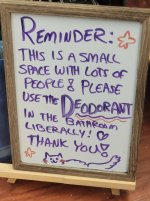 REMINDER:
THIS IS A SMALL
SPACE WITH LOTS OF
PEOPLE & PLEASE
USE THE DEODORANT
IN THE BATHROOM
LIBERALLY!
THANK YOU!